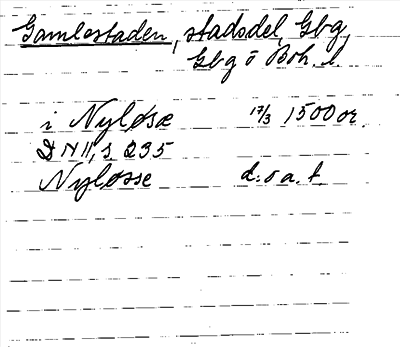 Gamlestaden, stadsdel, Gbg,
Gbg o Boh. l.
i Nyløsæ 17/3 1500 or.
D N II, s 235
Nyløsse d:o a. t.